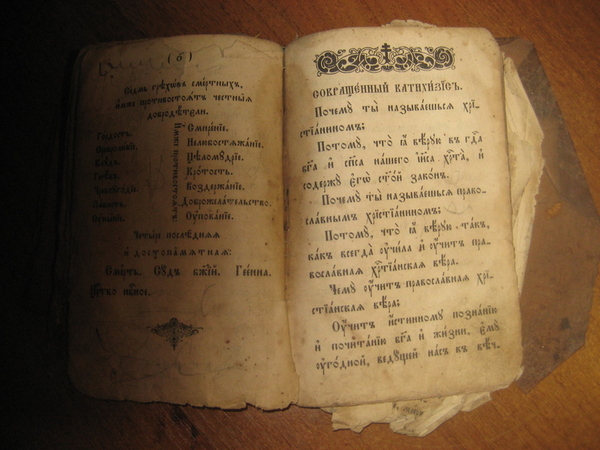 (ѕ҃)
Седмь грѣхѡвъ сме́ртныхъ,
и҆́мже противостоѧ́тъ честны́ѧ
добродѣ́тєли.
Смире́нїе.
Нелюбостѧжа́нїе.
Цѣломꙋ́дрїе.
Кро́тость.
Воздержа́нїе.
Доброжела́тельство.
Оу҆пова́нїе.
Четы́ре послѣ́днѧѧ
и҆ достопа́мѧтнаѧ:
Сме́рть. Сꙋ́дъ бж҃їй. Гее́нна.
Црⷭ҇тво нбⷭ҇ное.
СОКРАЩЕ́ННЫЙ КАТИХИ́ЗІСЪ.
Почемꙋ̀ ты̀ называ́ешьсѧ хрⷭ҇-
тїа́ниномъ;
Потомꙋ̀, что̀ ꙗ҆̀ вѣ́рꙋю въ гдⷭ҇а
бг҃а и҆ сп҃са на́шего і҆и҃са хрⷭ҇та̀, и҆
содержꙋ̀ є҆гѡ̀ ст҃о́й зако́нъ.
Почемꙋ̀ ты̀ называ́ешьсѧ право-
сла́внымъ хрⷭ҇тїа́ниномъ;
Потомꙋ̀, что̀ ꙗ҆̀ вѣ́рꙋю та́къ,
ка́къ всегда̀ оу҆чи́ла и҆ оу҆́читъ пра-
восла́внаѧ хрⷭ҇тїа́нскаѧ вѣ́ра.
Чемꙋ̀ оу҆́читъ правосла́внаѧ хрⷭ҇-
тїа́нскаѧ вѣ́ра;
Оу҆́читъ и҆́стинномꙋ позна́нїю
и҆ почита́нїю бг҃а и҆ жи́зни, є҆мꙋ̀
оу҆го́дной, ведꙋ́щей на́съ къ вѣ́ч-